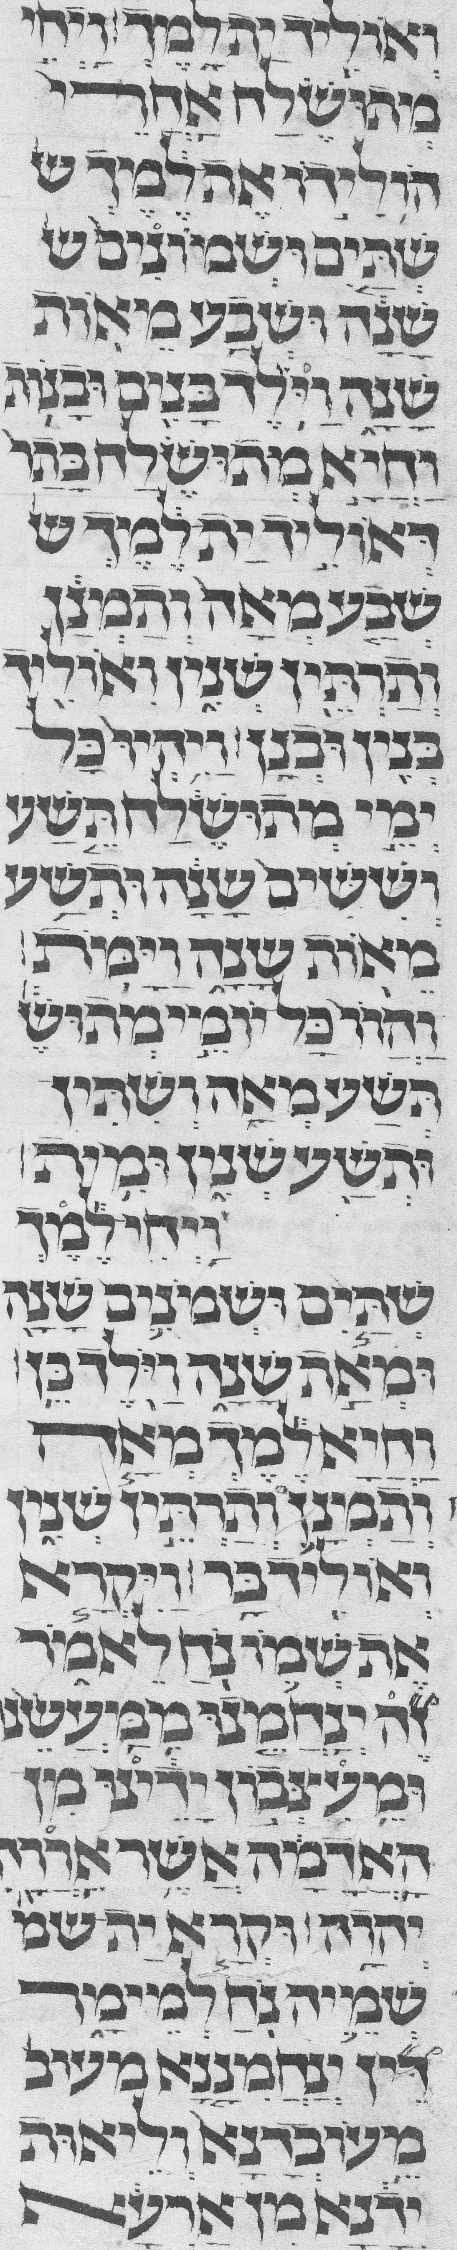 ואוליד ית למך ויחי
מתושלח אחרי
הולידו את למך ש
שתים ושמונים ש
שנה ושבע מאות
שנה ויולד בנים ובנות
וחיא מתושלח בתר
דאוליד ית למך ש
שבע מאה ותמנן
ותרתין שנין ואוליד
בנין ובנן ויהיו כל
ימי מתושלח תשע
וששים שנה ותשע
מאות שנה וימת
והוו כל יומיי מתוש
תשע מאה ושתין
ותשע שנין ומית
ויחי למך
שתים ושמנים שנה
ומאת שנה ויולד בן
וחיא למך מאה
ותמנן ותרתין שנין
ואוליד בר ויקרא
את שמו נח לאמר
זה ינחמנו ממעשנו
ומעצבון ידינו מן
האדמה אשר אררה
יהוה וקרא ית שמ
שמיה נח למימר
דין ינחמננא מעוב
מעובדנא וליאות
ידנא מן ארעא